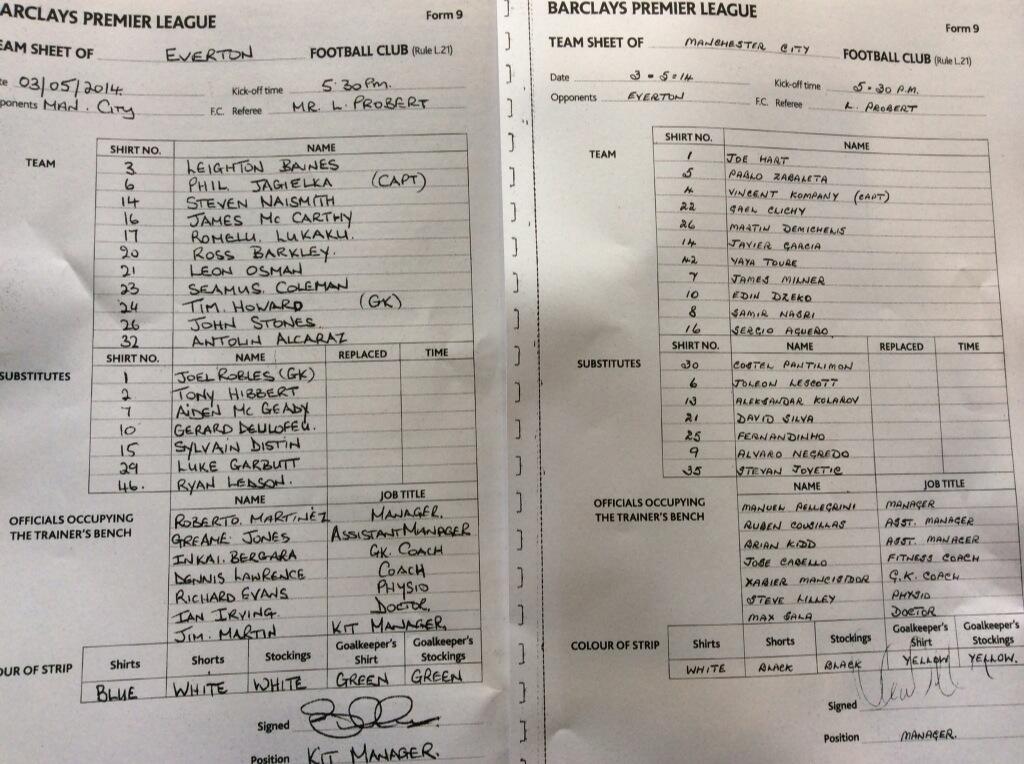 BARCLAYS PREMIER LEAGUE
Form 9
TEAM SHEET OF EVERTON FOOTBALL CLUB (Rule L.21)
03/05/2014 Kick-off time 5:30pm.
MAN. City F.C. Referee MR. L. PROBERT
SHIRT NO. NAME
TEAM
3 LEIGHTON BAINES
6 PHIL JAGIELKA (CAPT)
14 STEVEN NAISMITH
16 JAMES Mc CARTHY
17 ROMELU. LUKAKU.
20 ROSS BARKLEY.
21 LEON OSMAN
23 SEAMUS COLEMAN
24 TIM. HOWARD (GK)
26 JOHN STONES.
32 ANTOLIN ALCARAZ
SHIRT NO. NAME REPLACED TIME
SUBSTITUTES
1 JOEL ROBLES (GK)
2 TONY HIBBERT
7 AIDEN Mc GEADY
10 GERARD DEULOFEU.
15 SYLVAIN DISTIN
29 LUKE GARBUTT
46. RYAN LEDSON.
NAME JOB TITLE
OFFICIALS OCCUPYING THE TRAINER'S BENCH
ROBERTO. MARTINEZ MANAGER.
GREAME JONES ASSISTANT MANAGER
INKAI. BERGARA GK. COACH
DENNIS LAWRENCE COACH
RICHARD EVANS PHYSIO
IAN IRVING. DOCTOR.
JIM. MARTIN KIT MANAGER.
COLOUR OF STRIP Shirts Shorts Stockings Goalkeeper's Shirt Goalkeeper's Stockings
BLUE WHITE WHITE GREEN GREEN
Signed
Position KIT MANAGER.
BARCLAYS PREMIER LEAGUE
Form 9
TEAM SHEET OF MANCHESTER CITY FOOTBALL CLUB (Rule L.21)
Date 3-5-14 Kick-off time 5-30 P.M.
Opponents EVERTON F.C. Referee L. PROBERT
SHIRT NO. NAME
TEAM
1 JOE HART
5 PABLO ZABALETA
4 VINCENT KOMPANY (CAPT)
22 GAEL CLICHY
26 MARTIN DEMICHELIS
14 JAVIER GARCIA
42 YAYA TOURE
7 JAMES MILNER
10 EDIN DZEKO
8 SAMIR NASRI
16 SERGIO AGUERO
SHIRT NO. NAME REPLACED TIME
SUBSTITUTES
30 COSTEL PANTILIMON
6 JOLEON LESCOTT
13 ALEKSANDAR KOLAROV
21 DAVID SILVA
25 FERNANDINHO
9 ALVARO NEGREDO
35 STEVAN JOVETIC
NAME JOB TITLE
OFFICIALS OCCUPYING THE TRAINER'S BENCH
MANUEL PELLEGRINI MANAGER
RUBEN COUSILLAS ASST. MANAGER
BRIAN KIDD ASST. MANAGER
JOSE CABELLO FITNESS COACH
XABIER MANCISIDOR G.K. COACH
STEVE LILLEY PHYSIO
MAX SALA DOCTOR
COLOUR OF STRIP Shirts Shorts Stockings Goalkeeper's Shirt Goalkeeper's Stockings
WHITE BLACK BLACK YELLOW YELLOW.
Signed
Position MANAGER.